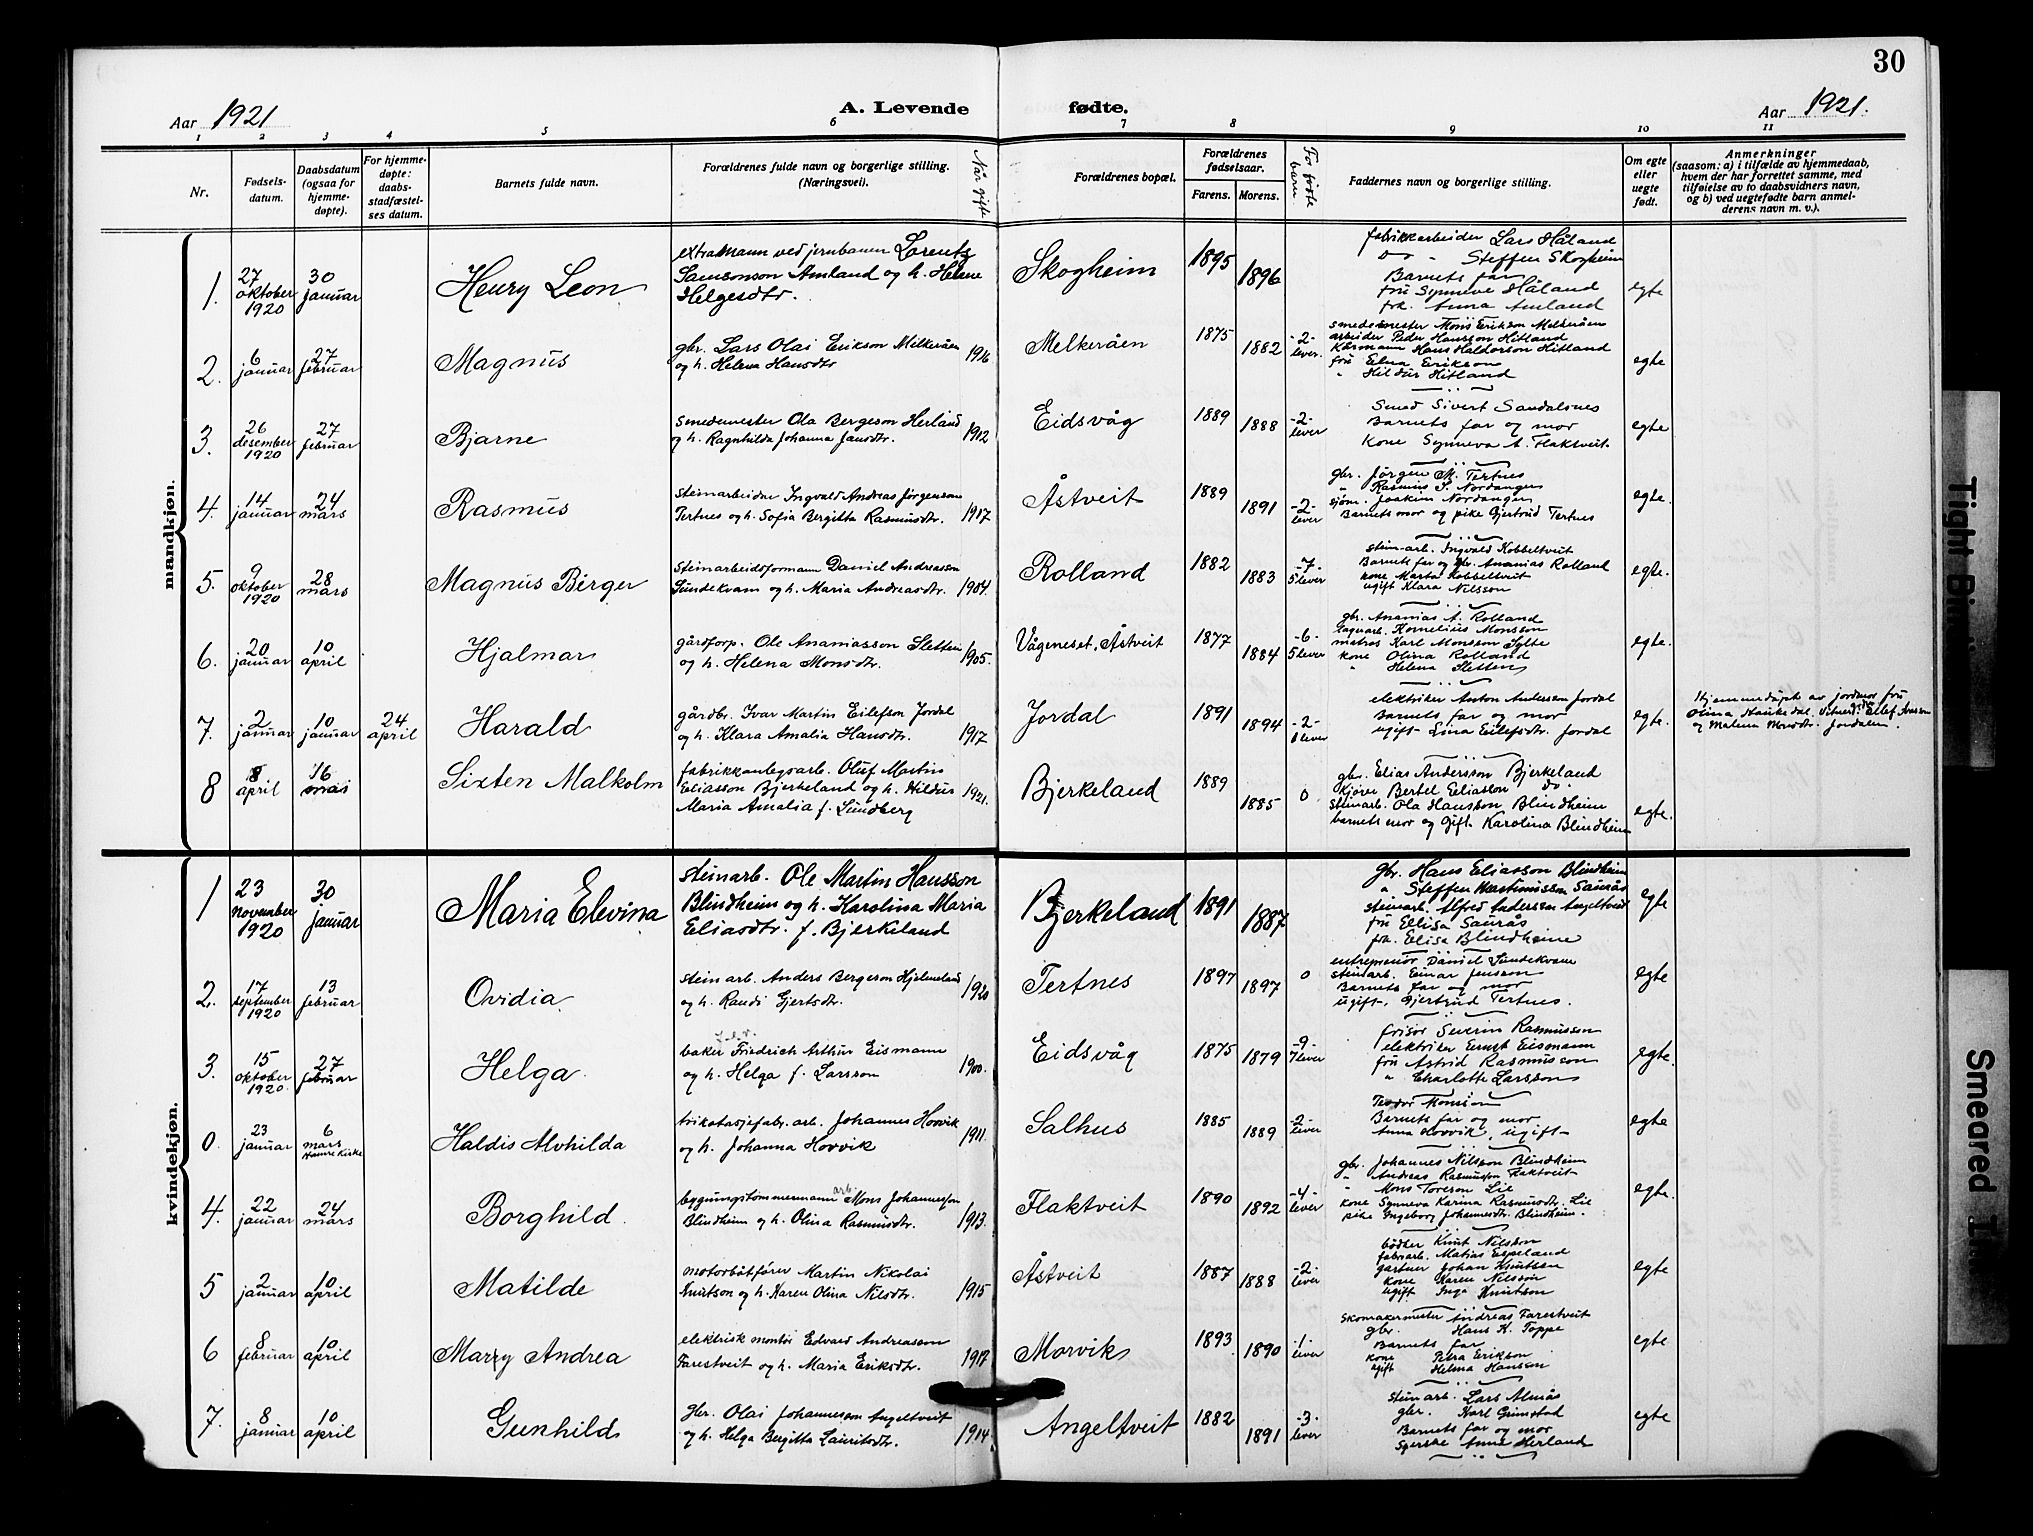 30
Aar 1921
A. Levende
fødte.
Aar 1921.
1 2 3 4 5 6 7 8 9 10 11
Nr.
Fødsels-
datum.
Daabsdatum
(ogsaa for
hjemme-
døpte).
For hjemme-
døpte:
daabs-
stadfæstel-
ses datum.
Barnets fulde navn.
Forældrenes fulde navn og borgerlige stilling.
(Næringsvei).
Når gift
Forældrenes bopæl.
Forældrenes
fødselsaar.
Farens. Morens.
Før fødte
barn
Faddernes navn og borgerlige stilling.
Om egte
eller
uegte
født.
Anmerkninger
(saasom: a) i tilfælde av hjemmedaab,
hvem der har forrettet samme, med
tilføielse av to daabsvidners navn,
og b) ved uegtefødte barn anmel-
derens navn m. v.).
mandkjøn.
1. 27 oktober 1920
30 januar
Henry Leon
extramann ved jernbanen Lorentz
Samsonson Amland og h. Helene
Helgesdtr.
Skogheim
1895 1896
fabrikkarbeider Lars Håland
Do " Steffen Skogheim
Barnets far
fru Synneve Håland
frk. Anna Amland
egte
2. 6 januar
27 februar
Magnus
gbr. Lars Olai Erikson Melkeråen
og h. Helena Hansdtr
1916
Melkeråen
1875 1882
-2-
lever.
smedemester Mons Erikson Melkeråen
arbeider Peder Hansson Hitland
Kårmann Hans Haldorson Hitland
fru Elna Erikson
" Hildur Hitland
egte
3. 26 desember 1920
27 februar
Bjarne
smedemester Ola Bergeson Herland
og h. Ragnhilda Johanna Jansdtr.
1912
Eidsvåg
1889 1888
-2-
lever
Smed Sivert Sandalsnes
Barnets far og mor
Kone Synneva A. Flaktveit.
egte
4. 14 januar
24 mars
Rasmus
steinarbeider Ingvald Andreas Jørgenson
Tertnes og h. Sofia Bergitta Rasmusdtr.
1917
Åstveit
1889 1891
-2-
lever
gbr. Jørgen M. Tertnes
" Rasmus J. Nordanger
sjøm. Joakim Nordanger
Barnets mor og pike Gjertrud Tertnes
egte.
5. 9 oktober 1920
28 mars
Magnus Birger
steinarbeidsformann Daniel Andreasson
Sundekvam og h. Maria Andreasdtr.
1904.
Rolland
1882 1883
-7-
5 lever
stein-arb. Ingvald Kobbeltveit
Barnets far og gbr. Ananias Rolland
kone Marta Kobbeltveit
ugift Klara Nilsson
egte.
6. 20 januar
10 april
Hjalmar
gårdforp. Ole Ananiasson Sletten
og h. Helena Monsdtr.
1905.
Vågeneset, Åstveit
1877 1884
-6-
5 lever
gbr. Ananias A. Rolland
Kornelius Monsson
matros Karl Monsson Sylte
kone Olina Rolland
" Helena Sletten
egte.
7. 2 januar
10 januar
24 april
Harald
gårdbr. Ivar Martin Eilefson Jordal
og h. Klara Amalia Hansdtr.
1917
Jordal
1891 1894
-2-
1 lever
elektriker Anton Andersson Jordal
Barnets far og mor
ugift Lina Eilefsdtr. Jordal
egte.
Hjemmedøpt av jordmor fru
Olina Haukedal. Vitner: Eilef Ivarson
og Malena Monsdtr. Jordalen.
8 8 april
16 mai
Sixten Malkolm
fabrikkanlegsarb. Oluf Martin
Eliasson Bjerkeland og h. Hildur
Maria Amalia f. Lundberg
1921.
Bjerkeland
1889 1885
0
gbr. Elias Andersson Bjerkeland
kjører Bertel Eliasson do.
steinarb. Ola Hansson Blindheim
barnets mor og gift Karolina Blindheim
egte.
kvindekjøn.
1 23 november 1920
30 januar
Maria Elevina
steinarb. Ole Martin Hansson
Blindheim og h. Karolina Maria
Eliasdtr. f. Bjerkeland
Bjerkeland
1891 1887
gbr. Hans Eliasson Blindheim
" Steffen Saurås
steinarb. Alfred Anderson Angeltveit
fru Ellisa Saurås
frk. Elise Blindheim
egte
2. 17 september 1920
13 februar
Ovidia
steinarb. Anders Bergeson Hjelmeland
og h. Randi Gjertsdtr.
1920
Tertnes
1897 1897
0
entreprenør Daniel Sundekvam
steinarb. Einar Jenson
Barnets far og mor
ugift. Gjertrud Tertnes.
egte
3. 15 oktober 1920.
27 februar
Helga
baker Friedrich Arthur Eismann
og h. Helga f. Larsson
1900.
Eidsvåg
1875 1879
-9-
7 lever
frisør Severin Rasmussen
elektriker Ernst Eismann
fru Astrid Rasmusson
" Charlotte Larsson
egte.
0. 23 januar
6 mars
Hamre Kirke
Haldis Alvhilda
trikotasjefabr. arb. Johannes Hovvik
og h. Johanna Hovvik
1911.
Salhus
1885 1889
-2-
lever
Teodor Monsson
Barnets far og mor
Anna Hovvik, ugift
egte
4. 22 januar
24 mars
Borghild
bygningstømmermann arb. Mons Johannesson
Blindheim og h. Olina Rasmusdtr.
1913.
Flaktveit
1890 1892
-4-
lever
gbr. Johannes Nilsson Blindheim
" Andreas Rasmusson Flaktveit
" Mons Toreson Lie
kone Synneva Karina Rasmusdtr. Lie
pike Ingeborg Johannesdtr. Blindheim.
egte.
5 2 januar
10 april
Matilde
motorbåtfører Martin Nikolai
Knutson og h. Karen Olina Nilsdtr.
1915
Åstveit
1887 1888
-2-
lever
bødker Knut Nilsson
fabrarb. Matias Espeland
gartner Johan Knutson
kone Karen Nilsson
ugift Inga Knutson
egte
6 8 februar
10 april
Marry Andrea
elektrisk montør Edvard Andreasson
Farestveit og h. Maria Eriksdtr.
1917
Morvik
1893 1890
-1-
lever
Skomakermester Andreas Farestveit
gbr. Hans K. Toppe
Barnets far
kone Petra Erikson
ugift Helma Hanson
egte
7. 8 januar
10 april
Gunhild
gbr. Olai Johannesson Angeltveit
og h. Helga Bergitta Lauritsdtr.
1914
Angeltveit
1882 1891
-3-
lever
steinarb. Lars Almås
gbr. Karl Grimstad
Barnets far og mor
Anna Herland
egte
Tight Bin
Smeared